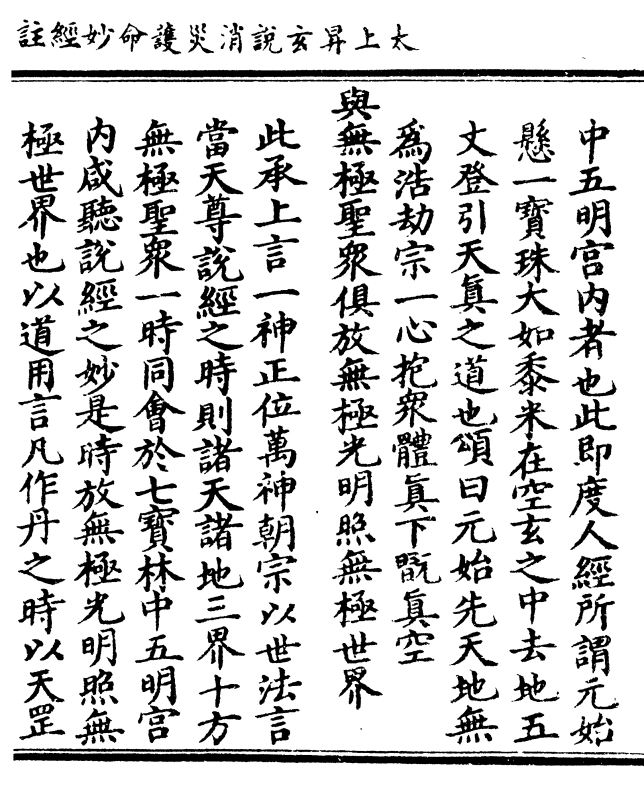 太上昇玄說消災護命妙經註
中五明宫内者也此即度人經所謂元始
懸一寶珠大如黍米在空玄之中去地五
丈登引天眞之道也頌曰元始先天地無
爲浩劫宗一心抱衆體眞下翫眞空
與無極聖衆俱放無極光明照無極世界
此承上言一神正位萬神朝宗以世法言
當天尊說經之時則諸天諸地三界十方
無極聖衆一時同會於七寶林中五明宫
内咸聽說經之妙是時放無極光明照無
極世界也以道用言凡作丹之時以天罡